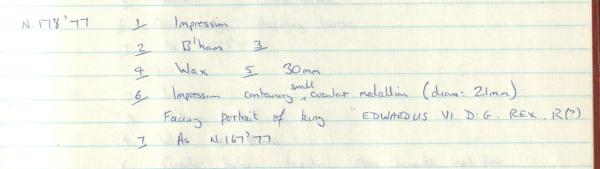 N.178'77 1 Impression
2 B'ham 3
4 Wax 5 30mm
6 Impression containing small circular medallion (diam: 21mm)
Facing portrait of king "EDWARDUS VI D.G. REX. R(?)
7 As N.167'77.